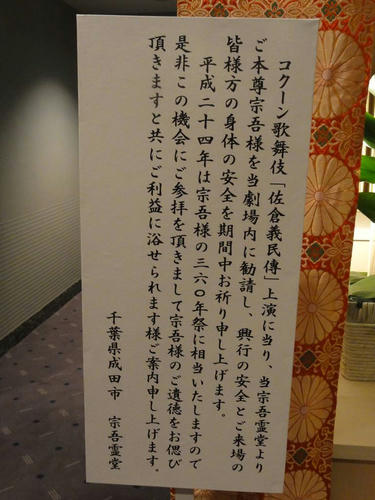 コクーン歌舞伎「佐倉義民傳」上演に当り、当宗吾霊堂より
ご本尊宗吾様を当劇場内に勧請し、興行の安全とご来場の
皆様方の身体の安全を期間中お祈り申し上げます。
平成二十四年は宗吾様の三六〇年祭に相当いたしますので
是非この機会にご参拝を頂きまして宗吾様のご遺徳をお偲び
頂きますと共にご利益に浴せられます様ご案内申し上げます。
千葉県成田市 宗吾霊堂